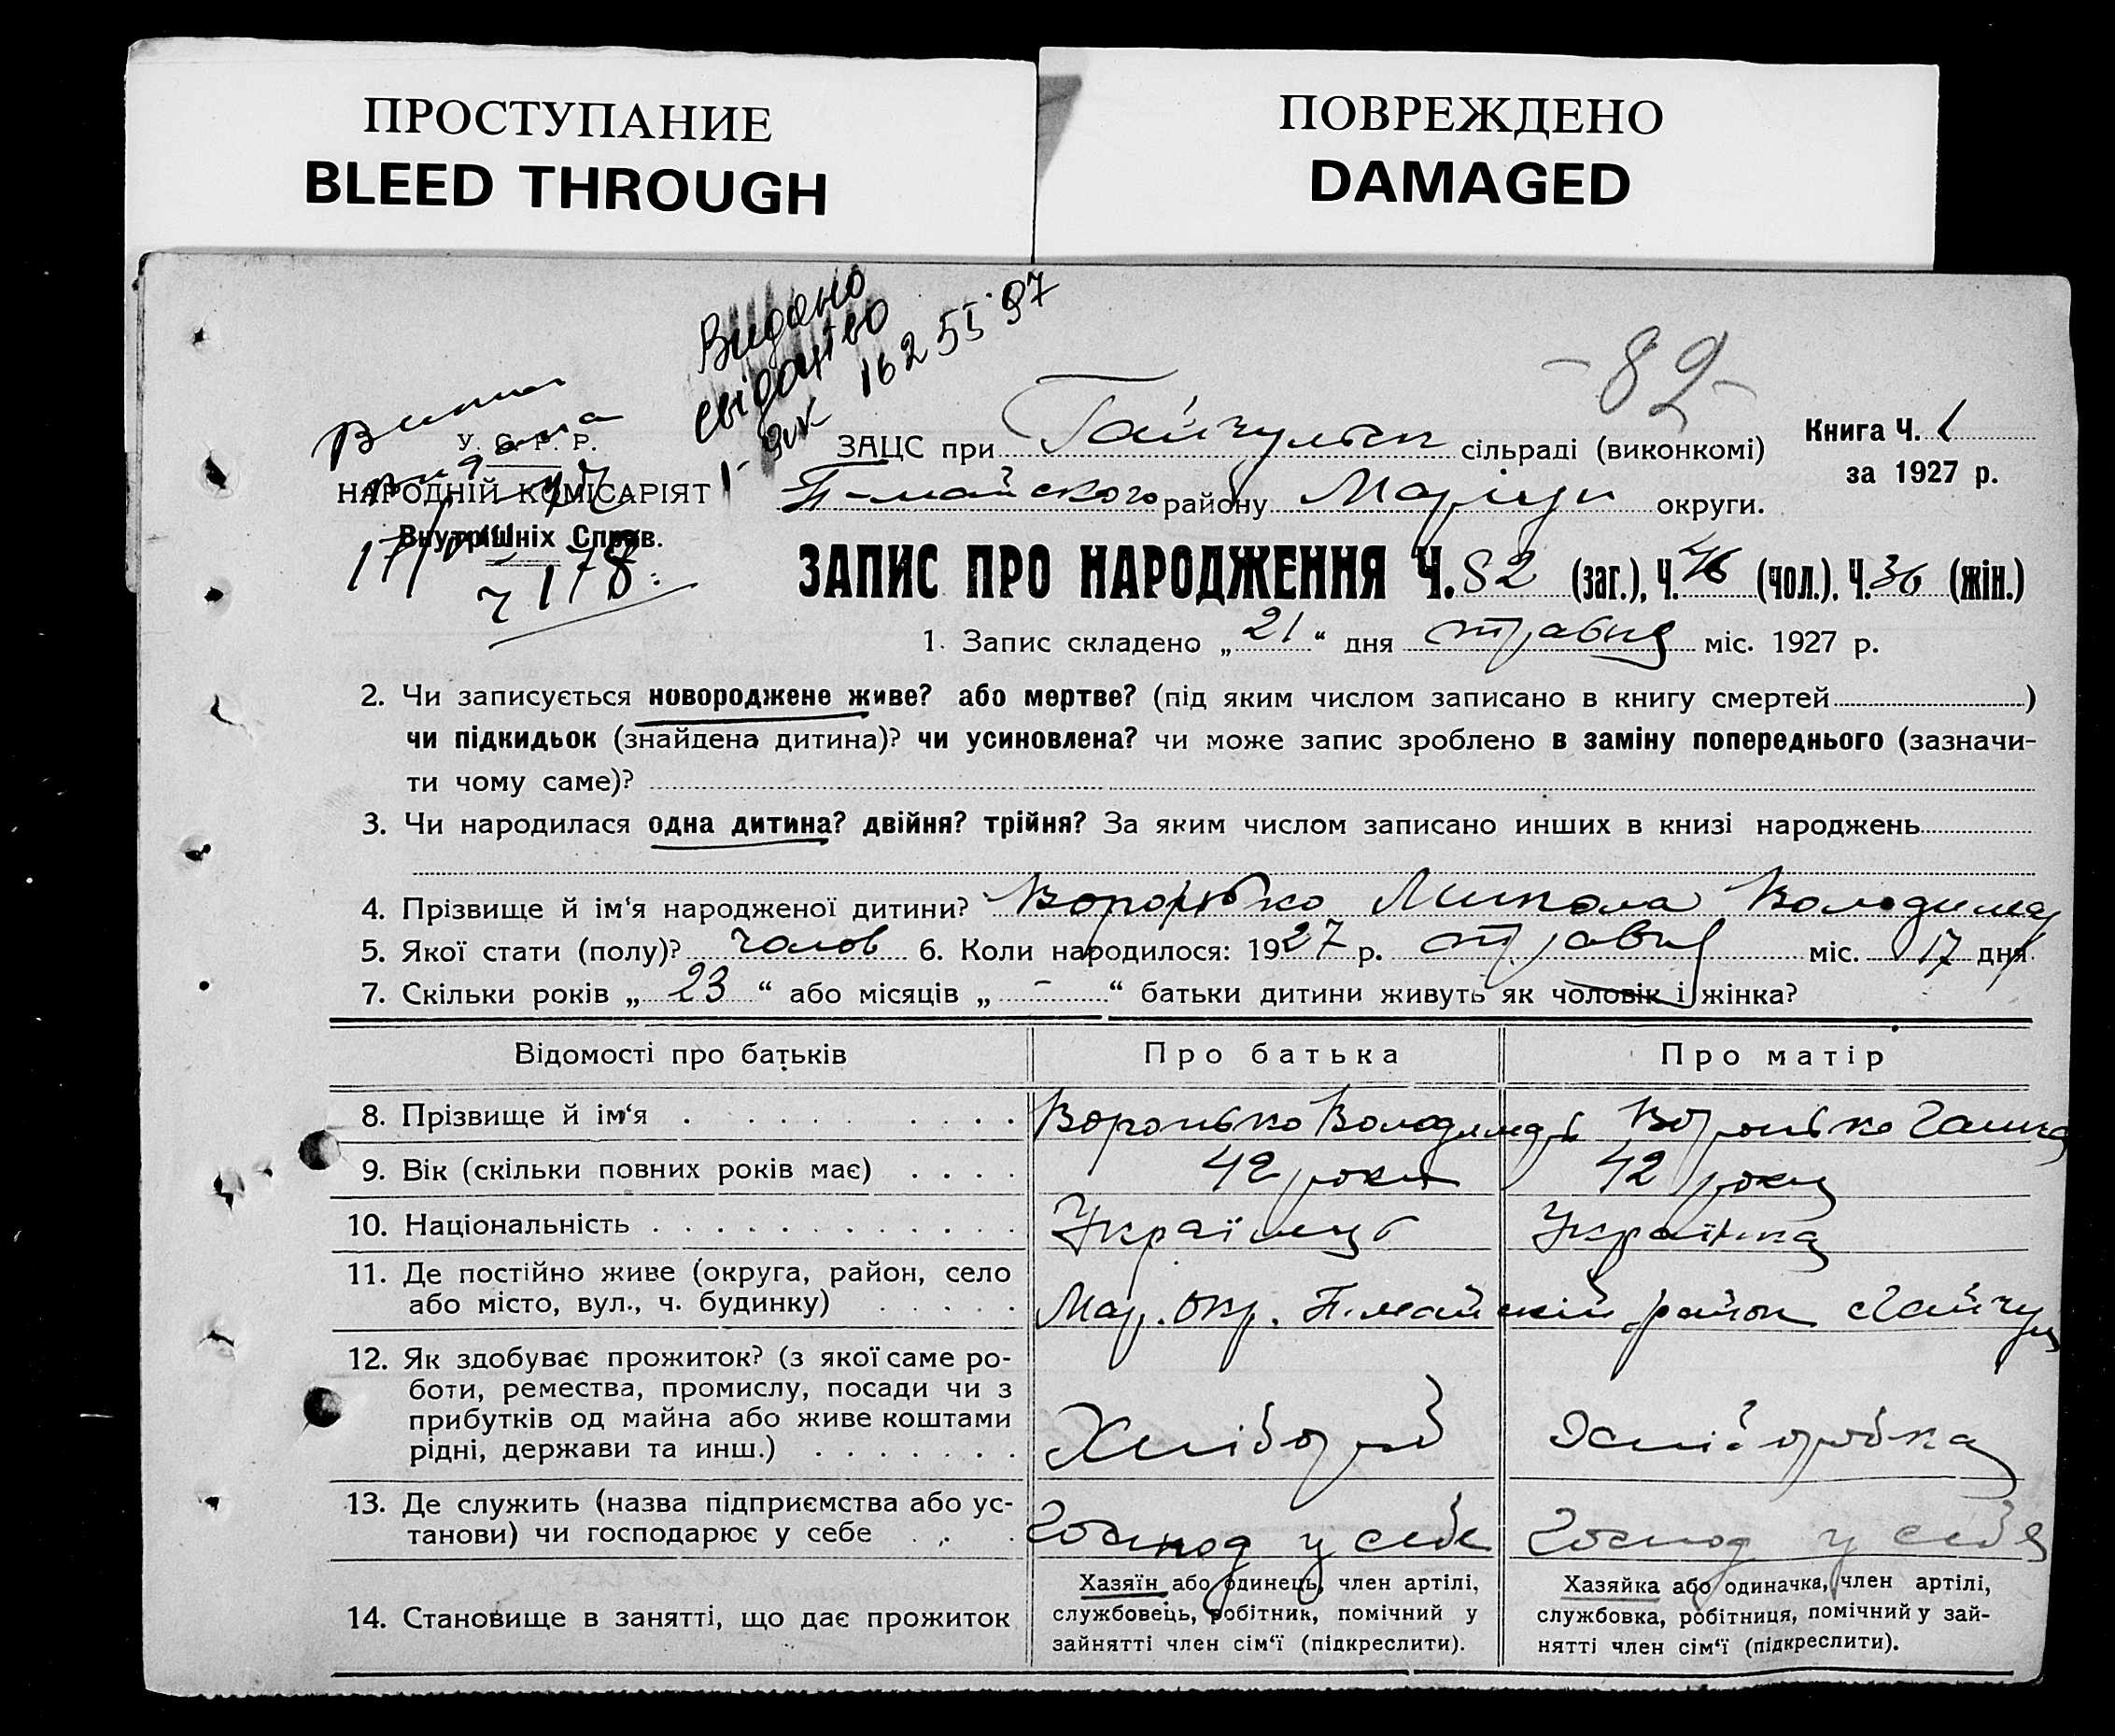 ПРОСТУПАНИЕ
BLEED THROUGH
ПОВРЕЖДЕНО
DAMAGED
Видано
свідоцтво
162551
-82-
У. С. Р. Р.
НАРОДНІЙ КОМІСАРІЯТ
Внутрішніх Справ.
178
ЗАЦС при Гайчульск сільраді (виконкомі)
Книга Ч. 1
за 1927 р.
П-майского району Маріуп округи.
ЗАПИС ПРО НАРОДЖЕННЯ Ч. 82 (заг.), Ч. 46 (чол.), Ч. 36 (жін.)
1. Запис складено „21“ дня травня міс. 1927 р.
2. Чи записується новороджене живе? або мертве? (під яким числом записано в книгу смертей)
чи підкидьок (знайдена дитина)? чи усиновлена? чи може запис зроблено в заміну попереднього (зазначи-
ти чому саме)?
3. Чи народилася одна дитина? двійня? трійня? За яким числом записано инших в книзі народжень
4. Прізвище й ім‘я народженої дитини? Воронько Микола Володимир
5. Якої стати (полу)? чолов 6. Коли народилося: 1927 р. травня міс. 17 дня
7. Скільки років „23“ або місяців „-“ батьки дитини живуть як чоловік і жінка?
Відомості про батьків Про батька Про матір
8. Прізвище й ім‘я Воронько Володимир Воронько Ганна
9. Вік (скільки повних років має) 42 роки 42 роки
10. Національність Українць Українка
11. Де постійно живе (округа, район, село
або місто, вул., ч. будинку) Мар. окр. П-майский район с Гайчул
12. Як здобуває прожиток? (з якої саме ро-
боти, ремества, промислу, посади чи з
прибутків од майна або живе коштами
рідні, держави та инш.) Хлібороб Хліборобка
13. Де служить (назва підприємства або ус-
танови) чи господарює у себе Господ у себе Господ у себя
14. Становище в занятті, що дає прожиток
Хазяїн або одинець, член артілі,
службовець, робітник, помічний у
зайнятті член сім‘ї (підкреслити).
Хазяйка або одиначка, член артілі,
службовка, робітниця, помічний у зай-
нятті член сім‘ї (підкреслити).